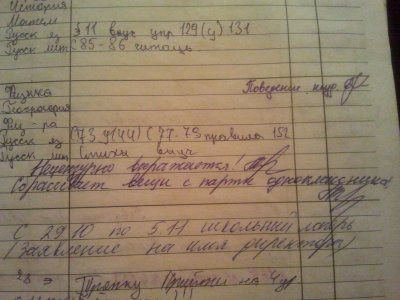 История
Матем
Русск яз § 11 выуч упр 129(у) 131
Русск лит с 85-86 читать
Физика
География
Поведение неуд.
Физ-ра
Русск яз (73 у(44) (77-78 правила 152
Русск лит Стихи выуч
Нецензурно выражается!
Сбрасывает вещи с парты одноклассницы
С 29.10 по 5.11 школьный лагерь
(Заявление на имя директора)
на